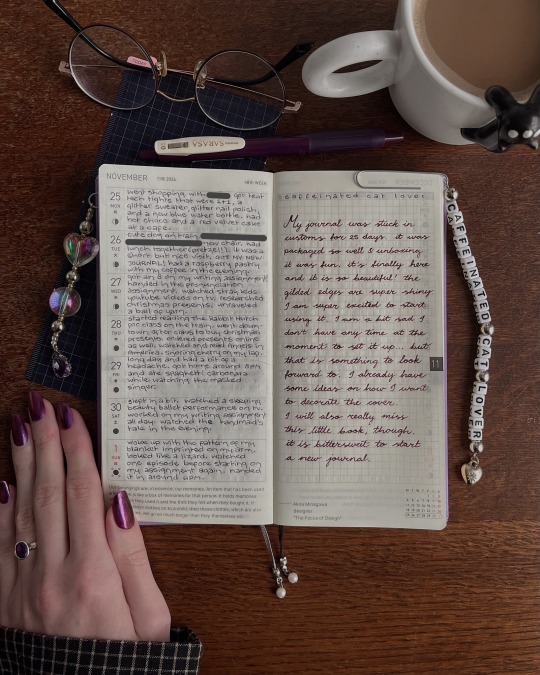 SARASA
NOVEMBER
THE 2024
48th WEEK
25
MON
went shopping with got heat
tech tights that were 2+1, a
glitter sweater, glitter nail polish,
and a new blue water bottle. had
hot choco and a red velvet cake
at a cafe.
26
TUE
cute dog on train,
new chair, had
lunch together it was a
short but nice visit. GOT MY NEW
JOURNAL! had a raspberry pastry
with my coffee in the evening.
27
WED
got an on my writing assignment
handed in the presentation
assignment, watched stray kids
youtube videos on tv, researched
christmas presents, unraveled
a ball of yarn.
28
THU
started reading the rabbit hutch
for class on the train, went down
town after class to buy christmas
presents. ordered presents online
as well, watched and read angels in
america. snoring cherry on my lap.
29
FRI
long day and had a bit of a
headache. got home around 8pm
and ate spaghetti carbonara
while watching the masked
singer.
30
SAT
slept in a bit. watched a sleeping
beauty ballet performance on tv.
worked on my writing assignment
all day. watched the handmaid's
tale in the evening.
1
SUN
woke up with the pattern of my
blanket imprinted on my arm.
looked like a lizard. watched
one episode before starting on
my assignment again. handed
it in around 6pm.
caffeinated cat lover
My journal was stuck in
customs for 25 days. it was
packaged so well & unboxing
it was fun. it's finally here
and it is so beautiful! the
gilded edges are super shiny
I am super excited to start
using it. I am a bit sad I
don't have any time at the
moment to set it up... but
that is something to look
forward to. I already have
some ideas on how I want
to decorate the cover.
I will also really miss
this little book, though.
it is bittersweet to start
a new journal.
11
Akira Minagawa
designer
"The Focus of Design"
CAFFEINATED CAT LOVER